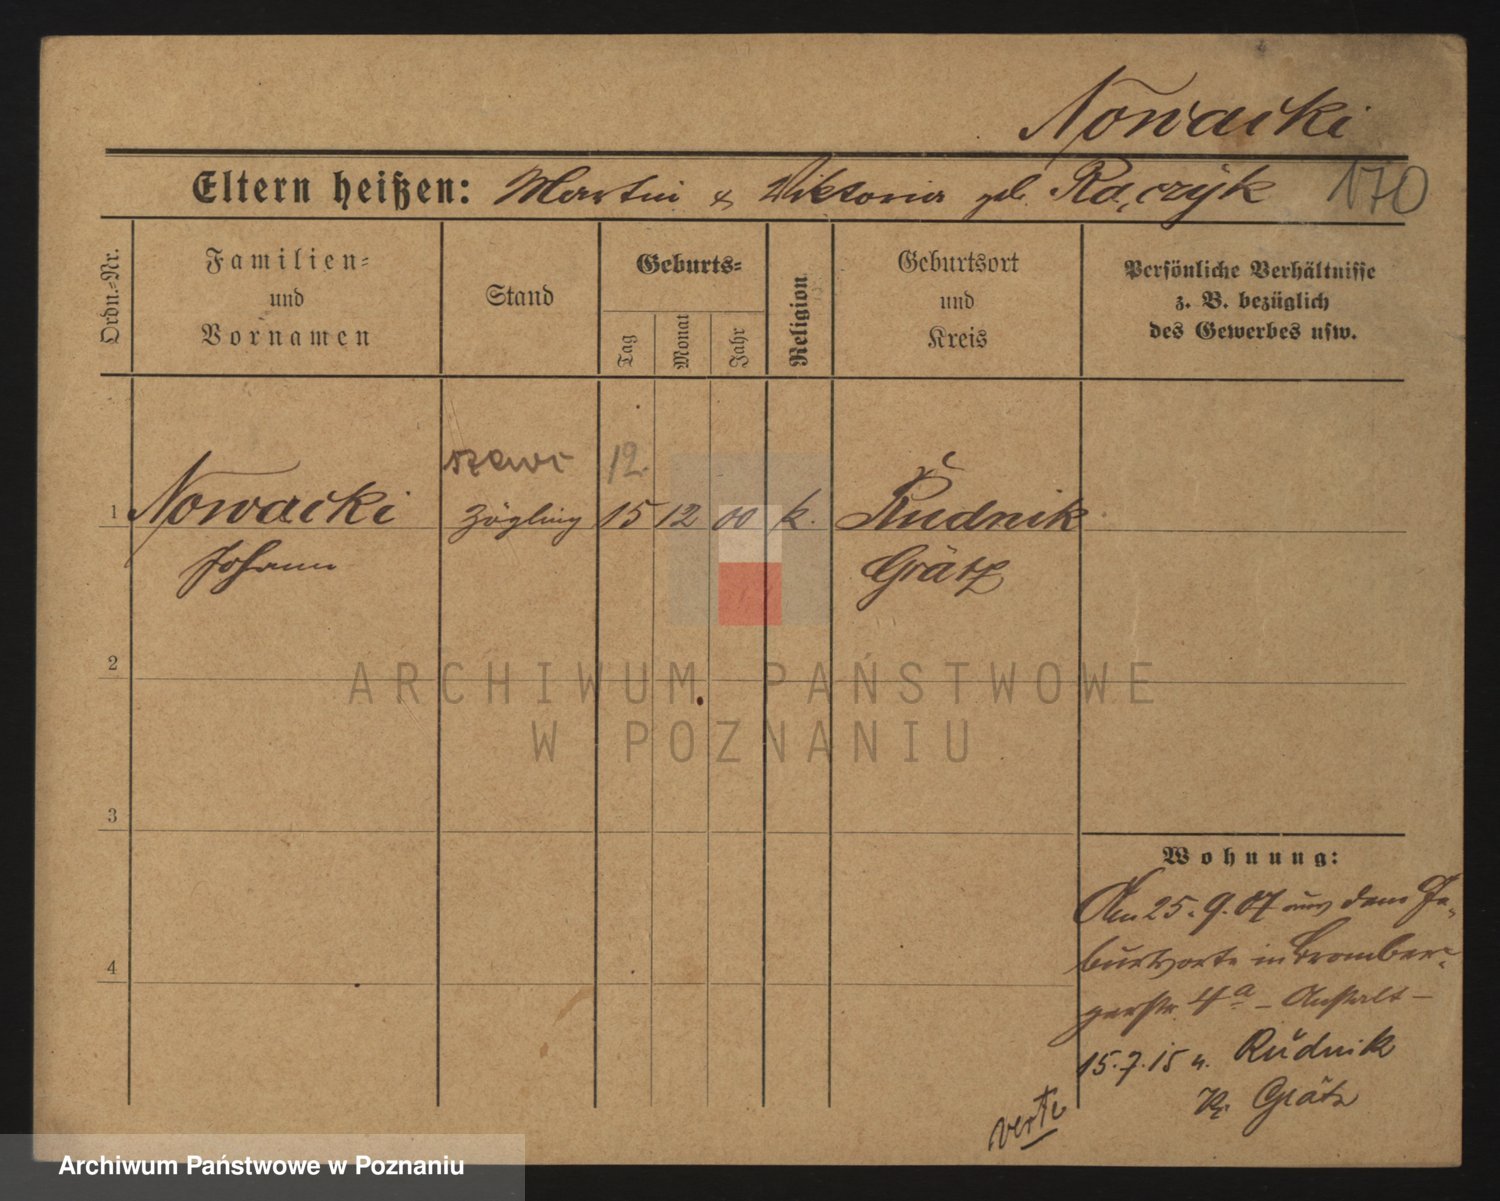 Nowacki
Eltern heißen: Martin & Viktoria geb. Raczyk 170
Ordn.-Nr.
Familien-
und
Vornamen
Stand
Geburts-
Tag
Monat
Jahr
Religion
Geburtsort
und
Kreis
Persönliche Verhältnisse
z. B. bezüglich
des Gewerbes usw.
szewc 12.
1 Nowacki Zögling 15 12 00 k. Rudnik
Johann Grätz
2
3
4
Wohnung:
Am 25.9.07 aus dem Ge-
burtsorte in Bromber-
gerstr. 4a – Anstalt –
15.7.15 n. Rudnik
Kr. Grätz
verte
ARCHIWUM PAŃSTWOWE
W POZNANIU
Archiwum Państwowe w Poznaniu